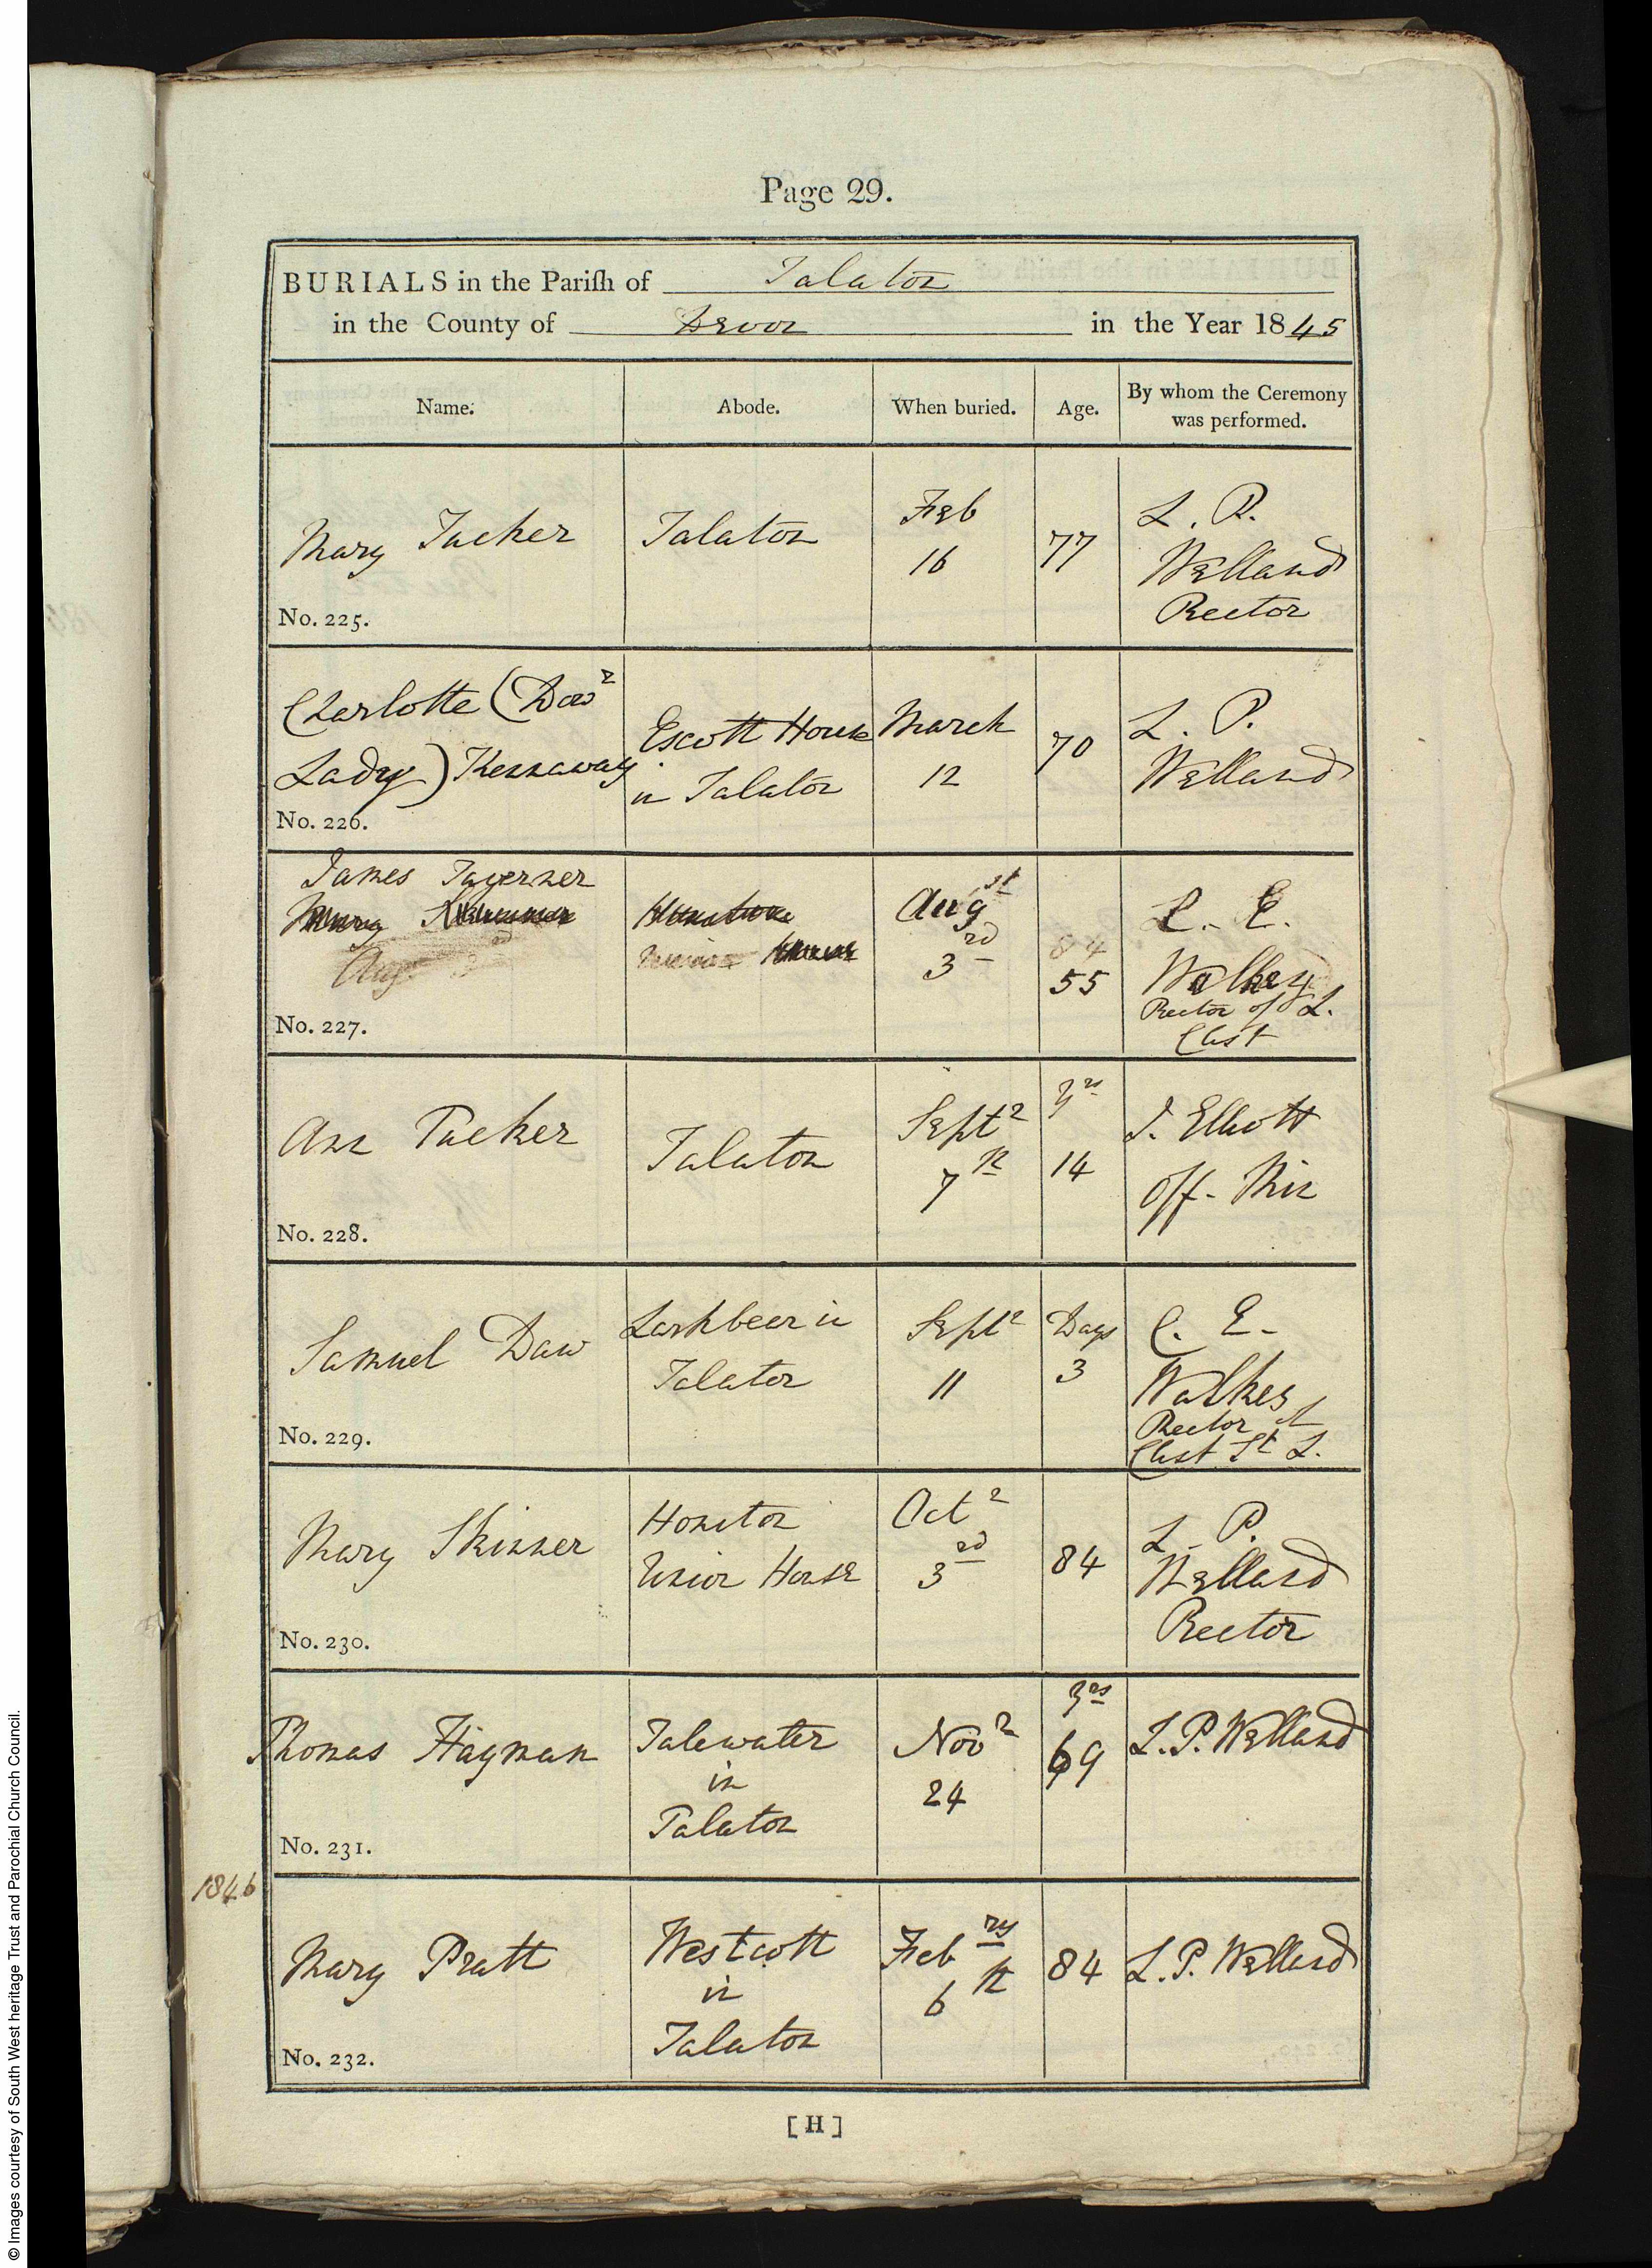 Page 29.
BURIALS in the Pariſh of Talaton
in the County of Devon in the Year 1845
Name. Abode. When buried. Age. By whom the Ceremony was performed.
Mary Tucker
No. 225.
Talaton
Feb
16
77
L. P.
Welland
Rector
Charlotte (Dowr
Lady) Kennaway
No. 226.
Escott House
in Talaton
March
12
70
L. P.
Welland
James Taverner
Mary Skinner
Aug 3rd
No. 227.
Honiton
Union House
Augst
3rd
84
55
C. E.
Walkey
Rector of St L.
Clist
Ann Tucker
No. 228.
Talaton
Septr
7th
yrs
14
J. Elliott
Off. Min
Samuel Daw
No. 229.
Larkbeer in
Talaton
Septr
11
Days
3
C. E.
Walkey
Rector of
Clist St L.
Mary Skinner
No. 230.
Honiton
Union House
Octr
3rd
84
L. P.
Welland
Rector
Thomas Hayman
No. 231.
Talewater
in
Talaton
Novr
24
yrs
69
L. P. Welland
1846
Mary Pratt
No. 232.
Westcott
in
Talaton
Febry
6th
84
L. P. Welland
[H]
© Images courtesy of South West heritage Trust and Parochial Church Council.